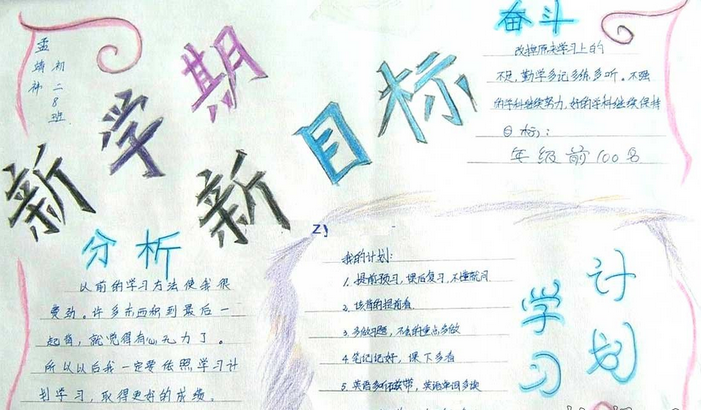 初二8班
新学期
新目标
奋斗
改掉原来学习上的
不足,勤学多记多练多听。不强
的学科继续努力,好的学科继续保持
目标:
年级前100名
分析
以前的学习方法使我很
受动。许多东西积到最后一
起背,就觉得有心无力了。
所以以后我一定要依照学习计
划学习,取得更好的成绩。
我的计划:
1. 提前预习,课后复习,不懂就问
2. 该背的提前背
3. 多做习题,不会的重点多做
4. 笔记记好,课下多看
5. 英语多听磁带,英语单词多读
学习
计划